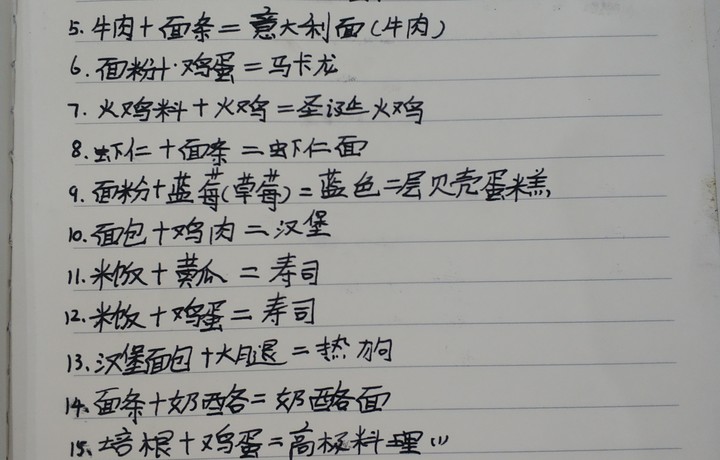 5. 牛肉+面条=意大利面(牛肉)
6. 面粉+鸡蛋=马卡龙
7. 火鸡料+火鸡=圣诞火鸡
8. 虾仁+面条=虾仁面
9. 面粉+蓝莓(草莓)=蓝色二层贝壳蛋糕
10. 面包+鸡肉=汉堡
11. 米饭+黄瓜=寿司
12. 米饭+鸡蛋=寿司
13. 汉堡面包+火腿=热狗
14. 面条+奶酪=奶酪面
15. 培根+鸡蛋=高极料理(1)